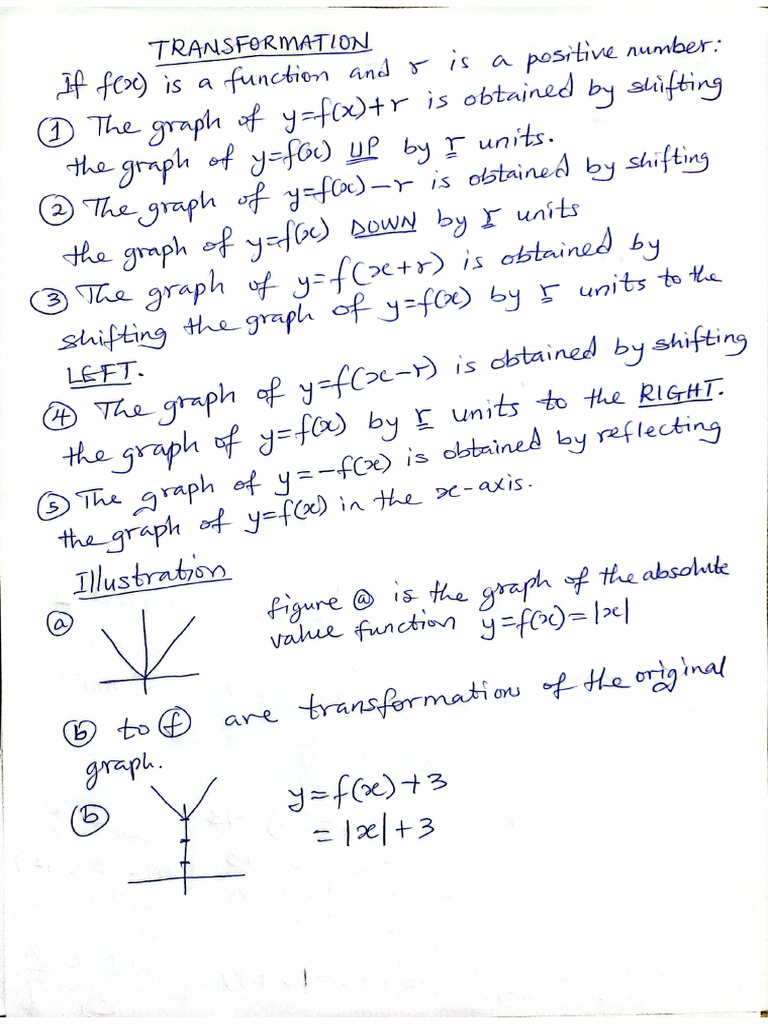 TRANSFORMATION
If f(x) is a function and r is a positive number:
① The graph of y=f(x)+r is obtained by shifting
the graph of y=f(x) UP by r units.
② The graph of y=f(x)-r is obtained by shifting
the graph of y=f(x) DOWN by r units
③ The graph of y=f(x+r) is obtained by
shifting the graph of y=f(x) by r units to the
LEFT.
④ The graph of y=f(x-r) is obtained by shifting
the graph of y=f(x) by r units to the RIGHT.
⑤ The graph of y=-f(x) is obtained by reflecting
the graph of y=f(x) in the x-axis.
Illustration
ⓐ
figure ⓐ is the graph of the absolute
value function y=f(x)=|x|
ⓑ to ⓕ are transformation of the original
graph.
ⓑ
y=f(x)+3
=|x|+3
1